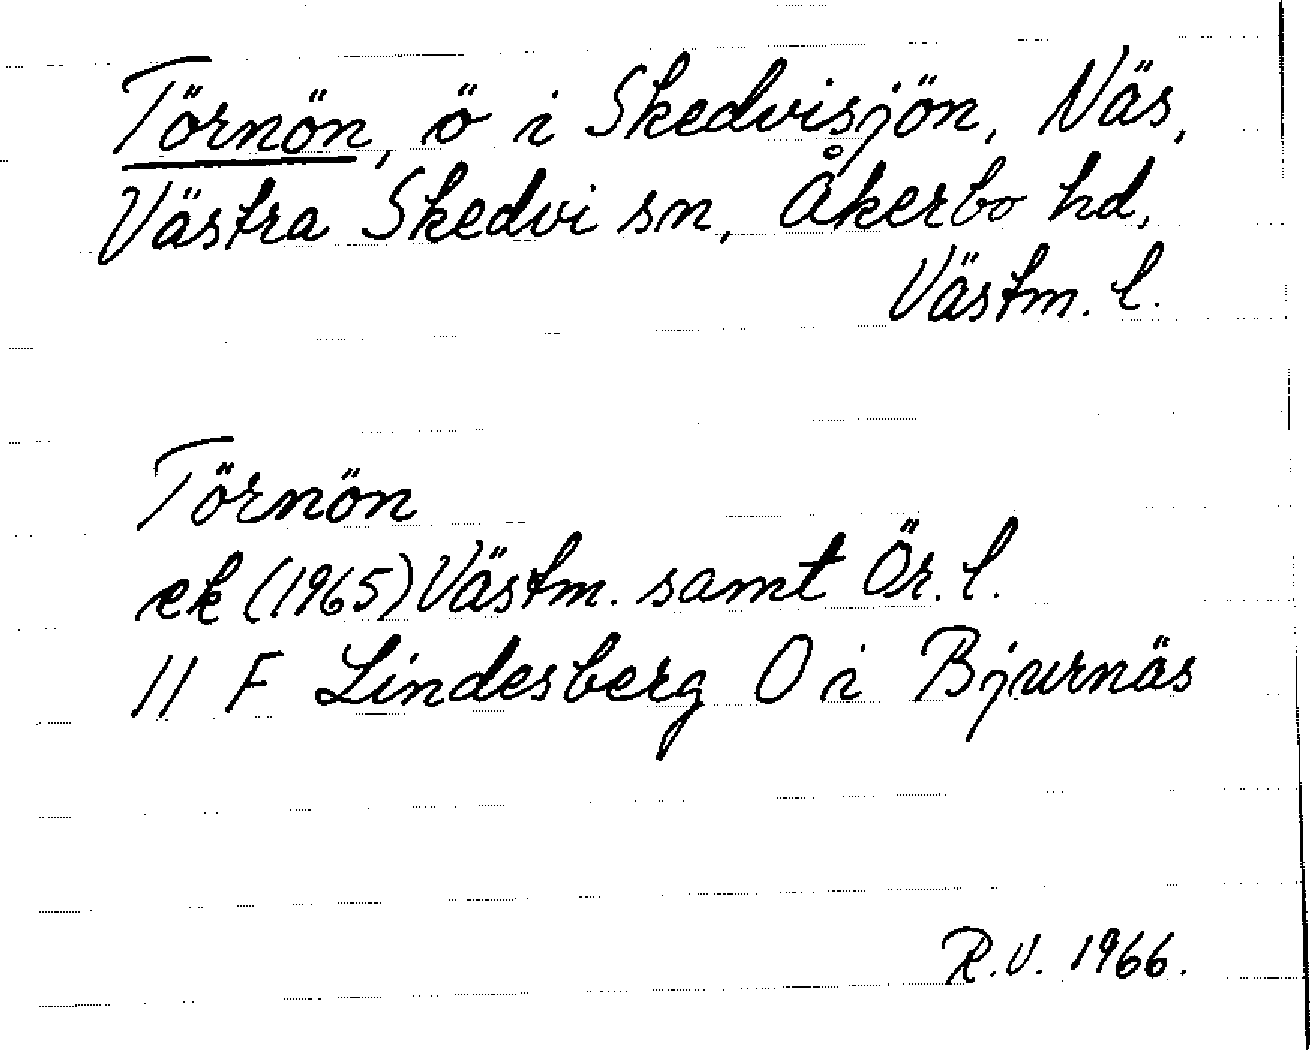 Törnön, ö i Skedvisjön, Näs,
Västra Skedvi sn, Åkerbo hd,
Västm. l.
Törnön
ek (1965) Västm. samt Ör. l.
11 F Lindesberg O i Bjurnäs
R.V. 1966.